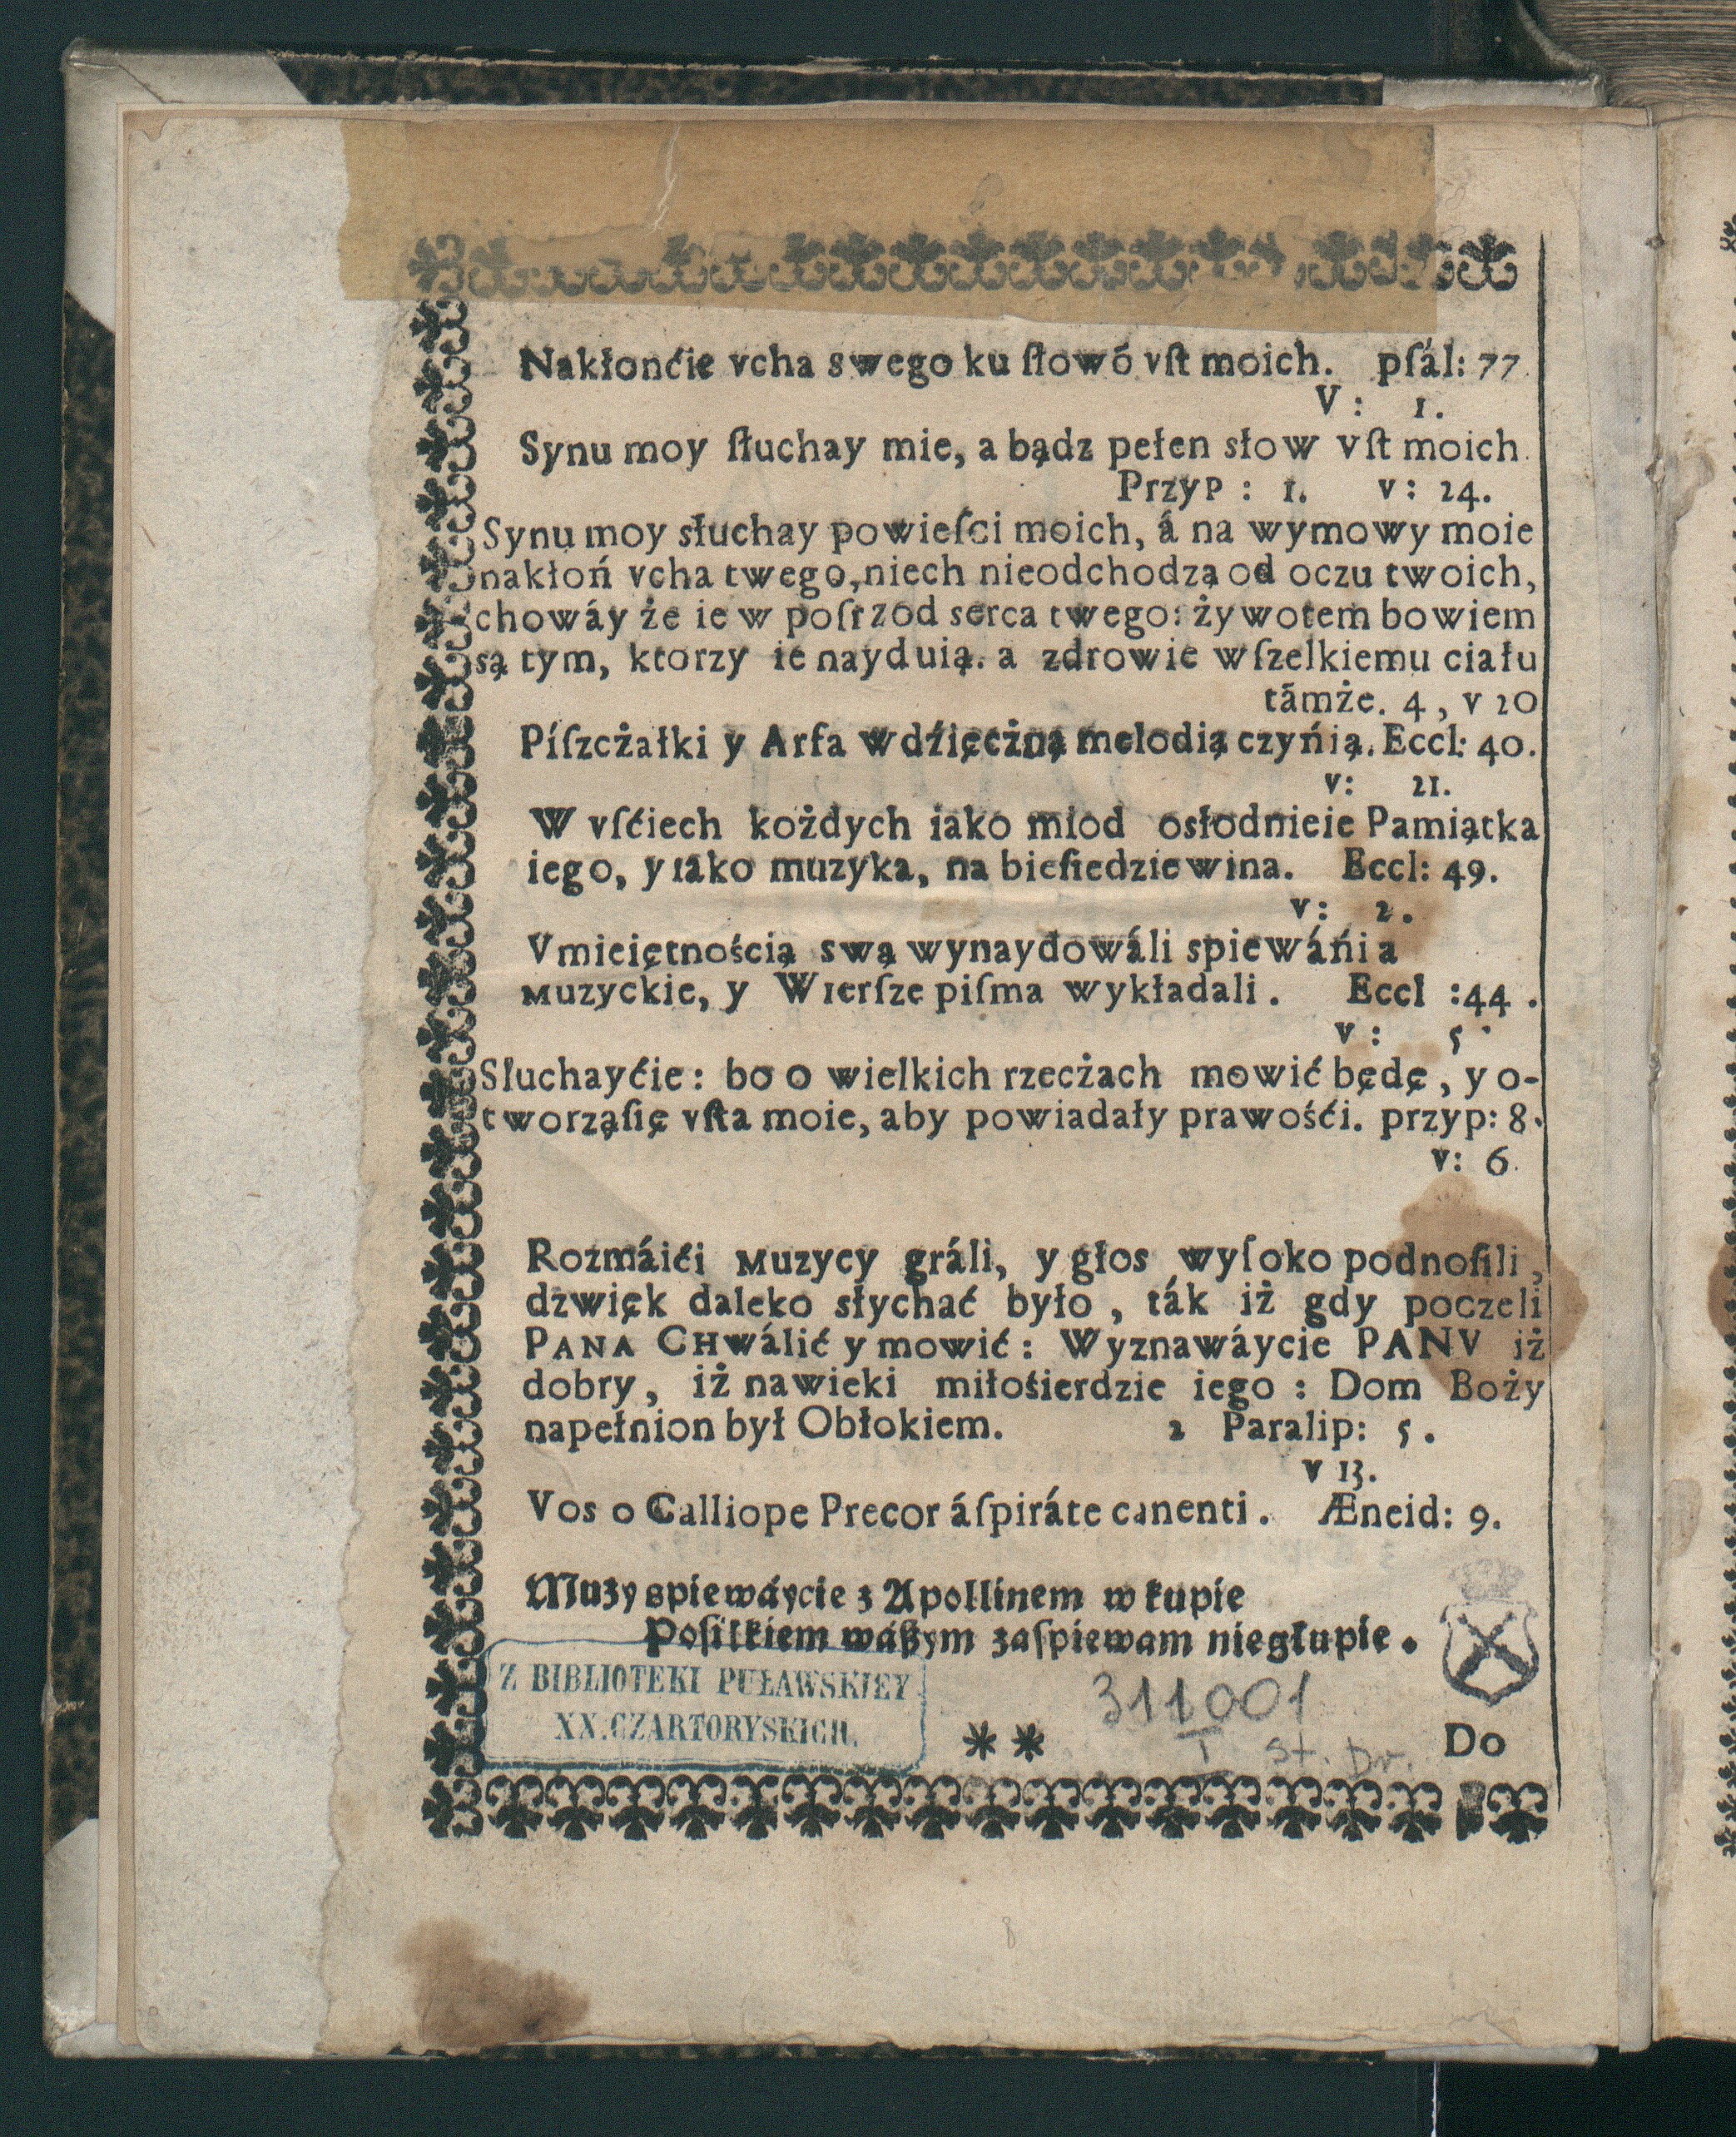 Nakłonćie vcha swego ku ſłowó vſt moich. pſál: 77.
V: 1.
Synu moy ſłuchay mie, a bądz pełen słow vſt moich.
Przyp: 1. v: 24.
Synu moy słuchay powieſci moich, á na wymowy moie
nakłoń vcha twego, niech nieodchodzą od oczu twoich,
chowáy że ie w poſrzod serca twego: żywotem bowiem
są tym, ktorzy ie nayduią. a zdrowie wſzelkiemu ciału
támże. 4, v 20
Píſzcżałki y Arfa wdźięcżną melodią czyńią. Eccl: 40.
v: 21.
W vſćiech kożdych iako miod osłodnieie Pamiątka
iego, y iáko muzyka, na bieſiedzie wina. Eccl: 49.
v: 2.
Vmieiętnością swą wynaydowáli spiewáńia
Muzyckie, y Wierſze piſma wykładali. Eccl :44.
v: 5.
Słuchayćie: bo o wielkich rzecżach mowić będę, y o-
tworząſię vſta moie, aby powiadały prawośći. przyp: 8.
v: 6.
Rozmáići Muzycy gráli, y głos wyſoko podnoſili,
dzwięk daleko słychać było, ták iż gdy poczeli
PANA CHwálić y mowić: Wyznawáycie PANV iż
dobry, iż nawieki miłośierdzie iego: Dom Boży
napełnion był Obłokiem. 2 Paralip: 5.
v 13.
Vos o Calliope Precor áſpiráte canenti. Æneid: 9.
Muzy spiewáycie z Apollinem w kupie
Poſiłkiem wáßym zaſpiewam niegłupie.
Z BIBLIOTEKI PUŁAWSKIEY
XX. CZARTORYSKICH.
311001
I St. Dr.
** Do
8